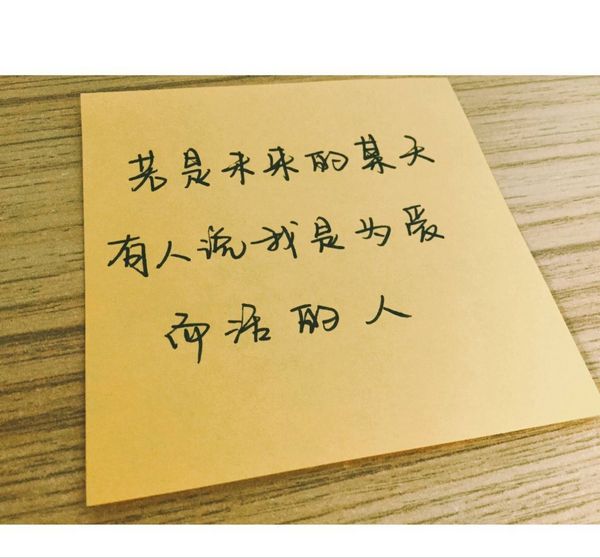 若是未来的某天
有人说我是为爱
而活的人